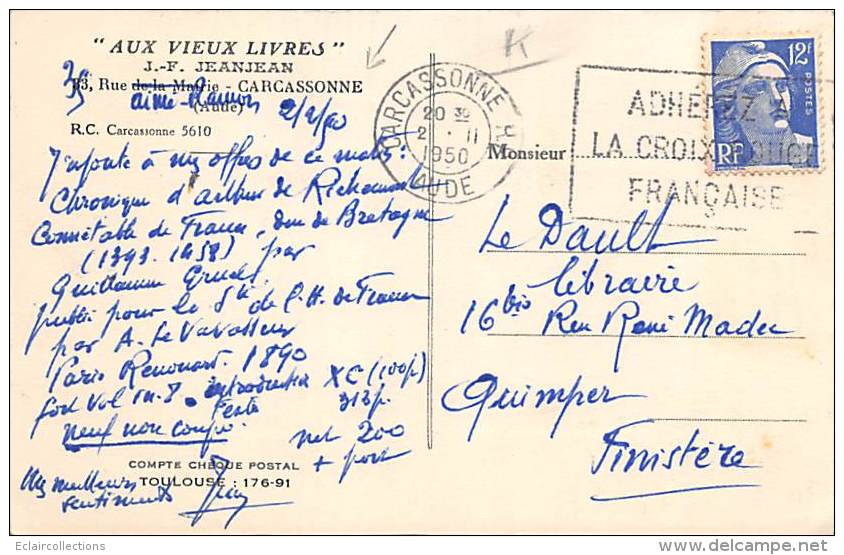 "AUX VIEUX LIVRES"
J.-F. JEANJEAN
33, Rue de la Mairie - CARCASSONNE
35 aimé-Ramon
(Aude)
2/2/50
R.C. Carcassonne 5610
J'ajoute à mes offres de ce matin :
Chronique d'arthur de Richemont
Connétable de France, duc de Bretagne
(1393-1458) par
Guillaume Gruel
publié pour la Sté de l'H. de France
par A. Le Vavasseur
Paris Renouard. 1890
fort vol in-8. introduction XC (100p)
texte 313p.
neuf non coupé.
net 200
+ port
COMPTE CHÈQUE POSTAL
TOULOUSE : 176-91
Mes meilleurs
sentiments
K
CARCASSONNE
20 30
2 - II
1950
AUDE
ADHÉREZ A
LA CROIX ROUGE
FRANÇAISE
12F
POSTES
RF
Monsieur
Le Dault
libraire
16 bis Rue René Madec
Quimper
Finistère
Eclaircollections
http://www.delcampe.net